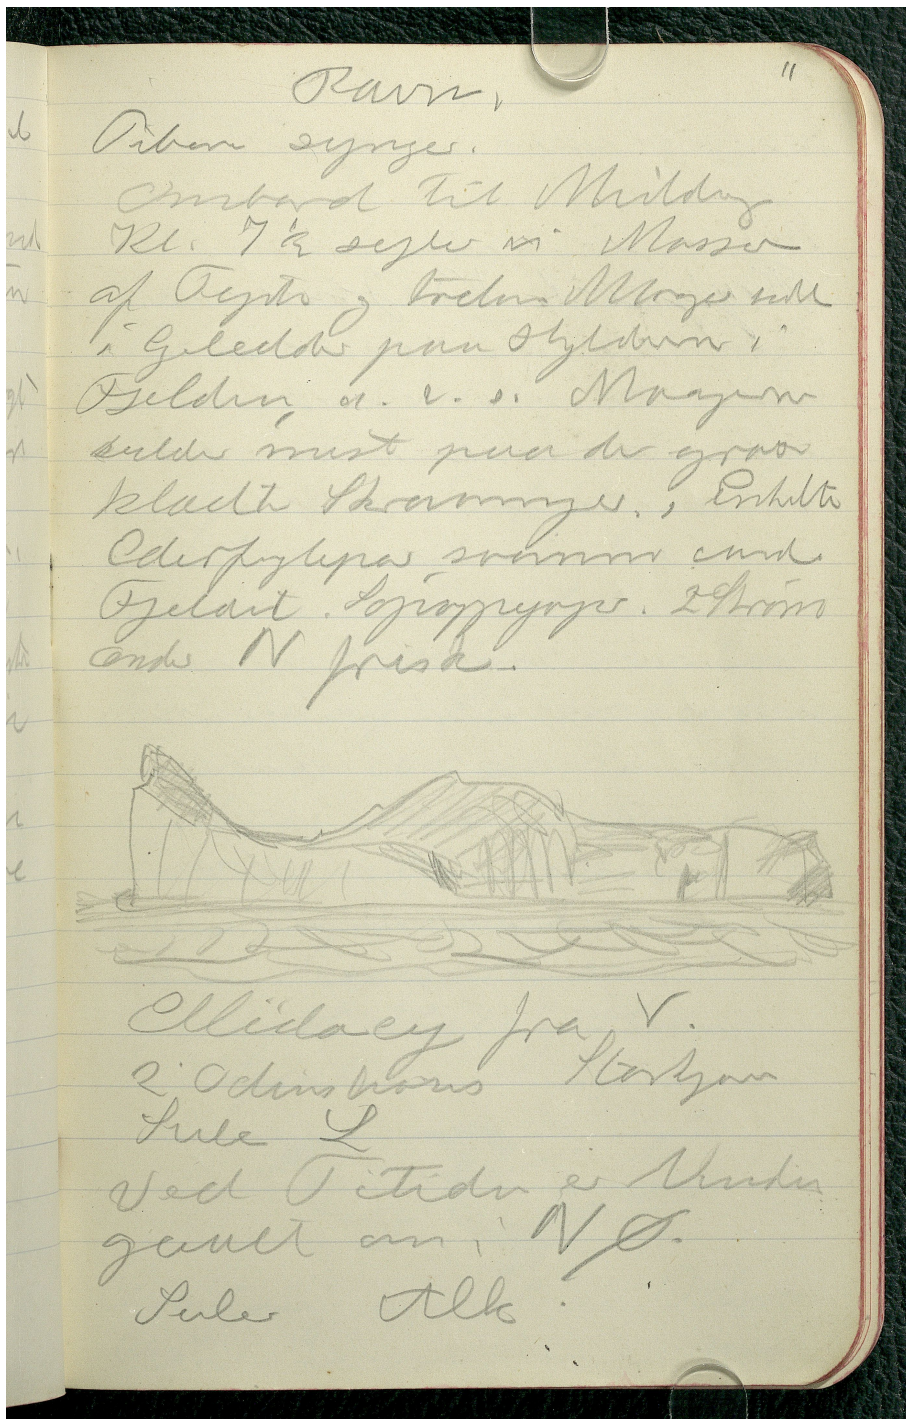 11
Ravn.
Piberen synger.
Ombord til Middag
Kl. 7½ sejler vi Masser
af Tejste og tretaaede Maager sidde
i Geledder paa Hylderne i
Fjeldene, o. s. v. Maagerne
sidder mest paa de græs
klædte Skraaninger, Enkelte
Ederfuglepar svømme under
Fjeldet. 2 Strøm
ænder N frisk.
Ellidaey fra V.
2 Odinshøns Storkjove
Sule L
Ved Titiden er Vinden
gaaet om i NØ.
Suler Alk